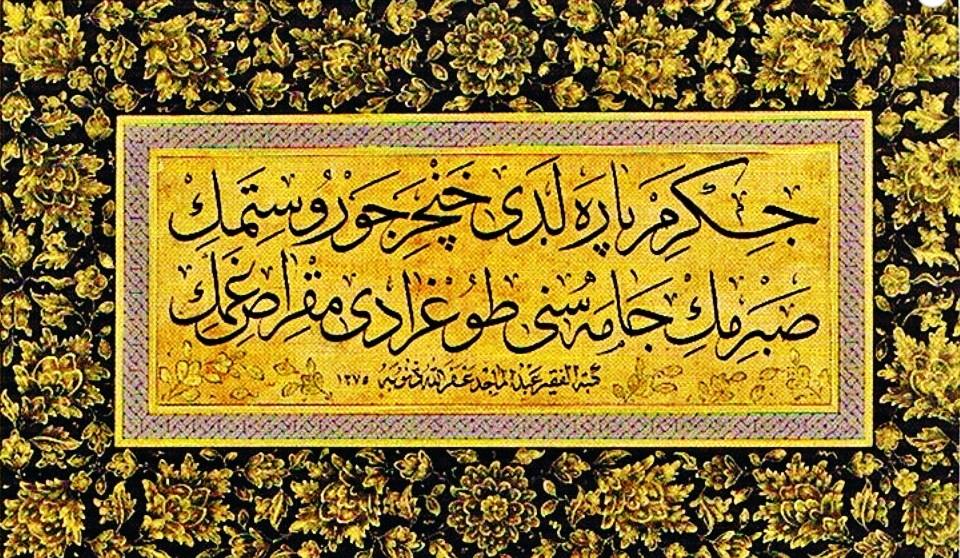 جگرم پاره لدی خنجر جور و ستمك
صبرمك جامه سنی طوغرادی مقراض غمك
كتبه الفقیر عبد الماجد غفر الله ذنوبه ١٢٧٥